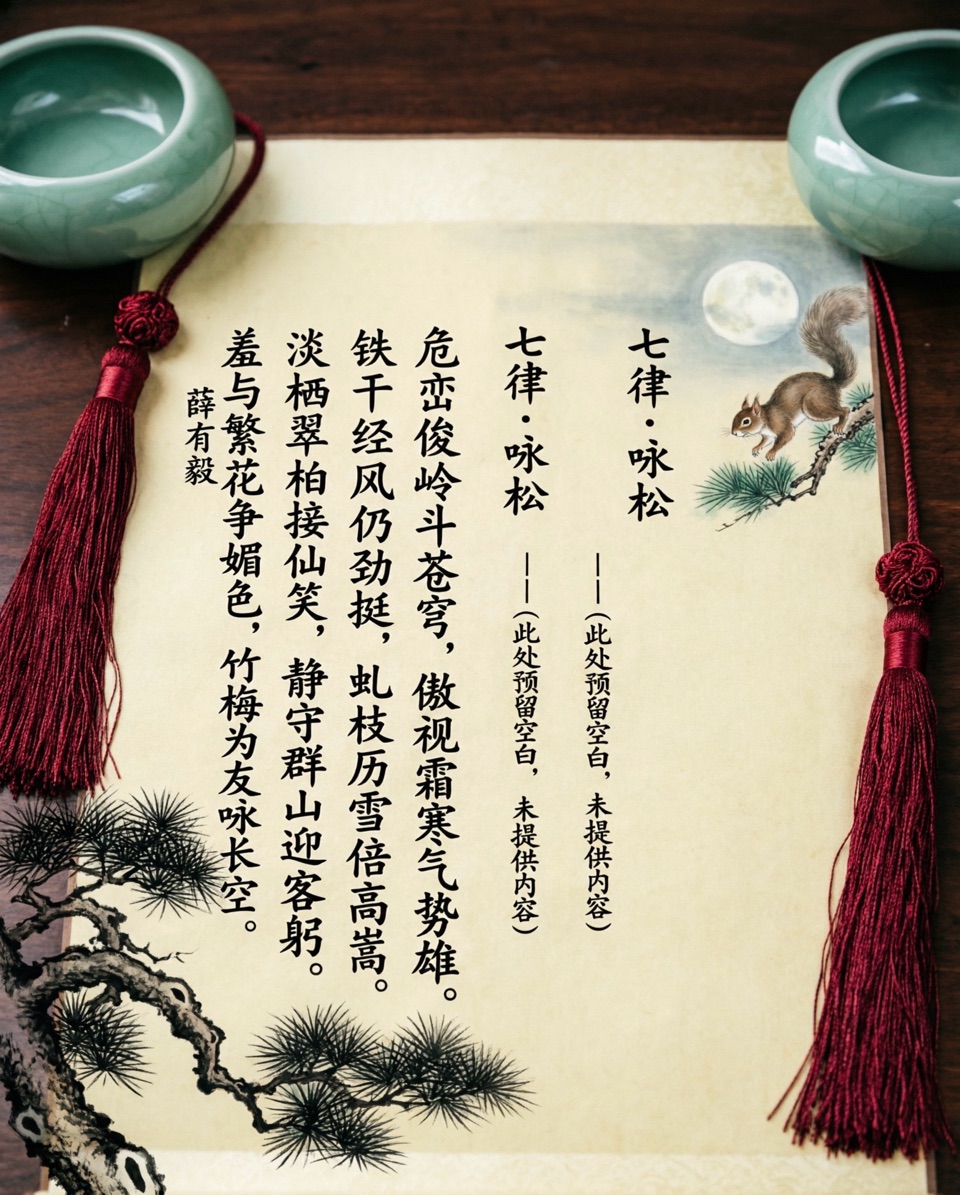 七律·咏松
——（此处预留空白，未提供内容）
七律·咏松
——（此处预留空白，未提供内容）
危峦俊岭斗苍穹，傲视霜寒气势雄。
铁干经风仍劲挺，虬枝历雪倍高嵩。
淡栖翠柏接仙笑，静守群山迎客躬。
羞与繁花争媚色，竹梅为友咏长空。
薛有毅